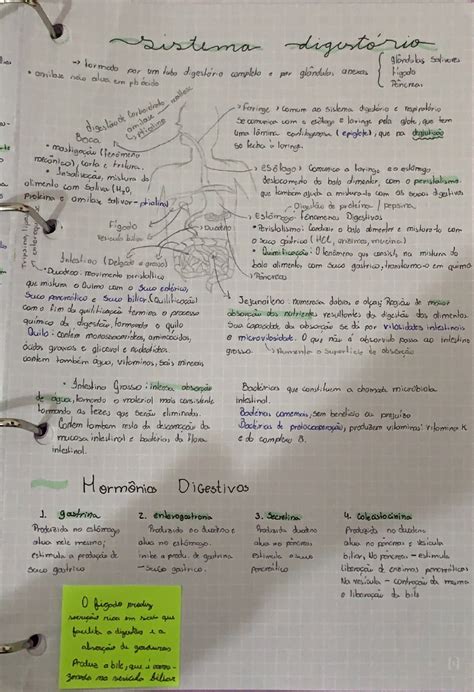 sistema digestório
• formado por um tubo digestório completo e por glândulas anexas
glândulas salivares
fígado
pâncreas
• amilase não atua em ph ácido
digestão de carboidrato
amilase
ptialina
maltose
Boca:
• mastigação (fenômeno
mecânico), corta e tritura.
• Insalivação, mistura do
alimento com saliva (H₂O,
Proteína e amilase salivar - ptialina)
→ Faringe: comum ao sistema digestório e respiratório
Se comunica com o esôfago e laringe pela glote, que tem
uma lâmina cartilaginosa (epiglote), que na deglutição
se fecha a laringe.
→ Esôfago: Comunica a faringe e o estômago
deslocamento do bolo alimentar, com o peristaltismo
que também ajuda a misturá-lo com os sucos digestivos
→ Digestão de proteína / pepsina
→ Estômago: Fenômenos Digestivos
• Peristaltismo: Conduzir o bolo alimentar e misturá-lo com
o suco gástrico (HCl, enzimas, mucina)
• Quimificação: O fenômeno que consiste na mistura do
bolo alimentar com suco gástrico, transformando-o em quimo
→ Pâncreas
Fígado
vesícula biliar
Duodeno
Intestino (Delgado e grosso)
• Duodeno: movimento peristáltico
que mistura o Quimo com o Suco entérico,
Suco pancreático e Suco biliar. (Quilificação)
com o fim da quilificação termina o processo
químico da digestão, formando o quilo
Quilo: contém monossacarídeos, aminoácidos,
ácidos graxos e glicerol e nucleotídeos
contém também água, vitaminas, sais minerais
Jejunoíleno: numerosas dobras e alças; Região de maior
absorção dos nutrientes resultantes da digestão dos alimentos
Sua capacidade de absorção se dá por vilosidades intestinais
e microvilosidade. O que não é absorvido passa ao intestino
grosso. ↳ Aumenta a superfície de absorção
• Intestino Grosso: intensa absorção
de água, tornando o material mais consistente
formando as fezes, que serão eliminadas.
Contém também resto da descamação da
mucosa intestinal e bactérias, da flora
intestinal.
Bactérias que constituem a chamada microbiota
intestinal.
Bactérias comensais, sem benefício ou prejuízo
Bactérias de protocooperação, produzem vitaminas: vitamina K
e do complexo B.
Hormônios Digestivos
1. gastrina
Produzida no estômago
atua nele mesmo;
estimula a produção de
suco gástrico
2. enterogastrona
Produzido no duodeno e
atua no estômago.
inibe a produ. de gastrina
- suco gástrico.
3. Secretina
Produzida duodeno
atua no pâncreas
Estimula o suco
pancreático
4. Colecistocinina
Produzida no duodeno
atua no pâncreas e vesícula
biliar. No pâncreas - estimula
liberação de enzimas pancreáticas
Na vesícula - contração da mesma
e liberação da bile
O fígado produz
secreção rica em sais que
facilita a digestão e a
absorção de gorduras
Produz a bile, que é arma-
zenada na vesícula biliar